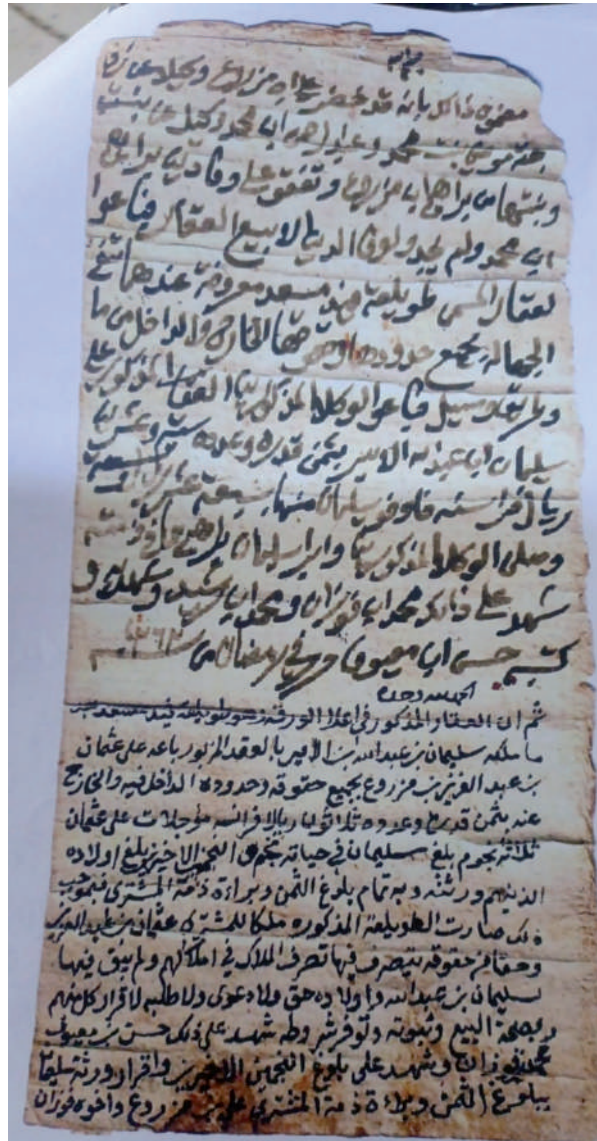 بسم الله
مضمون ذالك بانه قد حضر علي ابن مزروع وكيلا عن
بنت محمد وعبدالرحمن ابن محمد وكيل عن بنت
وبنتها من براهيم ابن مزروع وتفقو علي وفا دين براهيم
ابن محمد ولم يجدو لوفى الدين الا بيع العقار فباعوا
لعقار المسمى طويلعة فيد مسعد معروفة عندهما تنفي
الجهالة بجميع حدودها وحقوقها الخارج والداخل من ما
وطريق وسيل فباعو الوكلا المذكورين العقار المذكور على
سليمان ابن عبدالله الامير بثمن قدره وعدده ستة وعشرين
ريال فرانسه فاوفو سليمان منها سبعة عشر
وصلن الوكلا المذكورين وابرا سليمان براهيم من ذمته
شهد على ذالك محمد ابن فوزان ومحمد ابن رشيد وشهد به و
كتبه حسن ابن معيوف في رمضان من سنه
الحمد لله وحده
ثم ان العقار المذكور في اعلا الورقة وهو طويلعة فيد مسعد
ما ملكه سليمان بن عبدالله ابن الامير بالعقد المزبور باعه على عثمان
بن عبد العزيز بن مزروع بجميع حقوقه وحدوده الداخل فيه والخارج
عنه بثمن قدره وعدده ثلاثون ريالا فرانسه مؤجلات على عثمان
ثلاثة نجوم بلغ سليمان في حياته نجم والنجمين الاخيرين بلغ اولاده
الذينهم ورثته وبه تمام بلوغ الثمن وبراءة ذمة المشتري فبموجب
ذلك صارت الطويلعة المذكوره ملكا للمشتري عثمان بن عبد العزيز
وحقا من حقوقه يتصرف فيها تصرف الملاك في املاكهم ولم يبق فيها
لسليمان بن عبدالله واولاده حق ولا دعوى ولا طلبه لاقرار كل منهم
بصحة البيع وثبوته وتوفر شروطه شهد على ذلك حسن بن معيوف
محمد بن فوزان وشهد على بلوغ النجمين الاخيرين واقرار ورثة سليمان
ببلوغ الثمن وبراءة ذمة المشتري علي بن مزروع واخوه فوزان